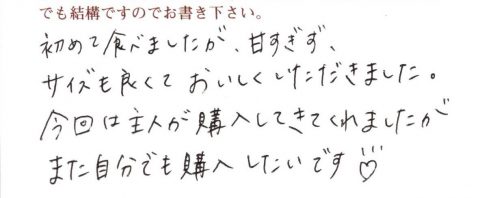 でも結構ですのでお書き下さい。
初めて食べましたが、甘すぎず、
サイズも良くて おいしくいただきました。
今回は主人が購入してきてくれましたが
また自分でも購入したいです♡